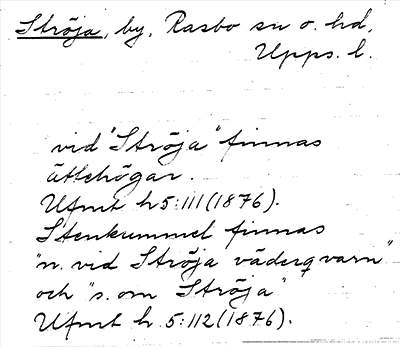 Ströja, by, Rasbo sn o. hd,
Upps. l.
vid "Ströja" finnas
ättehögar.
Ufmt h 5:111 (1876).
Stenkummel finnas
"n. vid Ströja väderqvarn"
och "s. om Ströja"
Ufmt h. 5:112 (1876).